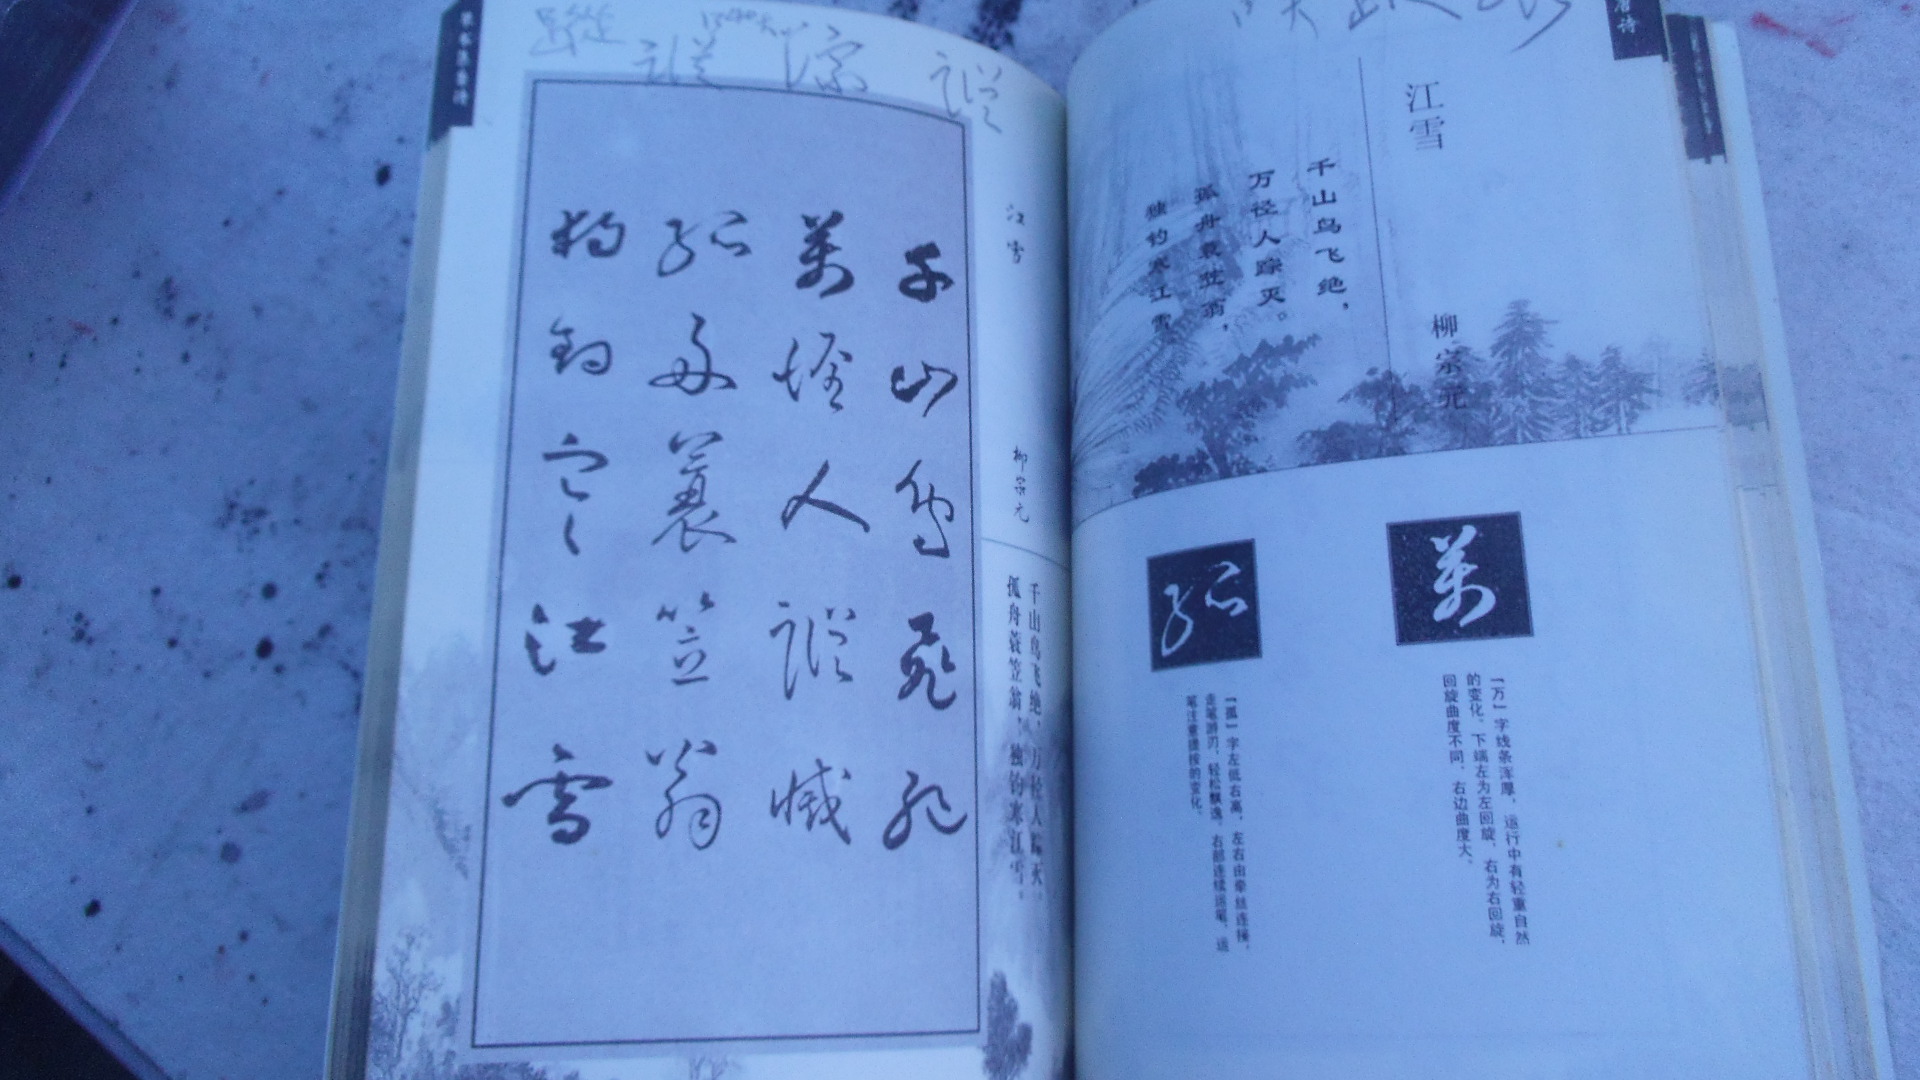 江雪
柳宗元
千山鸟飞绝，
万径人踪灭。
孤舟蓑笠翁，
独钓寒江雪。
萬
「万」字线条浑厚，运行中有轻重自然
的变化、下端左为左回旋，右为右回旋，
回旋曲度不同，右边曲度大。
孤
「孤」字左低右高，左右由牵丝连接，
走笔游刃，轻松飘逸，右部连续运笔，运
笔注意提按的变化。
唐诗
江雪
柳宗元
千山鸟飞绝，万径人踪灭。
孤舟蓑笠翁，独钓寒江雪。
千山鸟飞绝
萬径人踪滅
孤舟蓑笠翁
独钓寒江雪